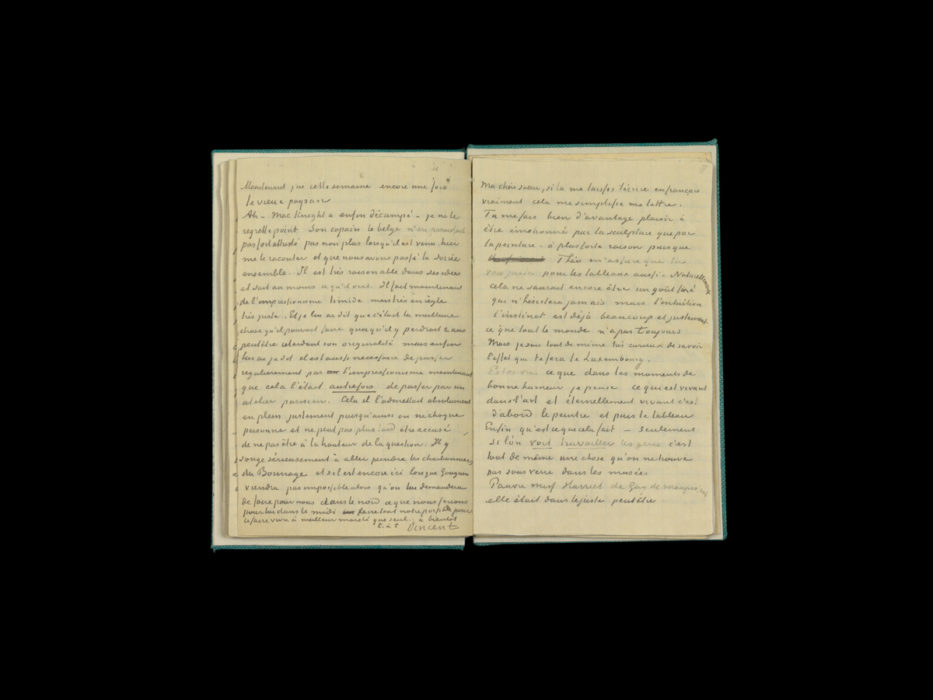 Maintenant j'ai cette semaine encore une fois
le vieux paysan
Ah – Mac Knight a enfin décampé – je ne le
regrette point. Son copain le belge n'en paraissait
pas fort attristé pas non plus lorsqu'il est venu hier
me le raconter et que nous avons passé la soirée
ensemble. Il est très raisonable dans ses idées
et sait au moins ce qu'il veut. Il fait maintenant
de l'impressionisme timide mais très en règle
très juste. Et je lui ai dit que c'était la meilleure
chose qu'il pouvait faire quoiqu'il y perdrait 2 ans
peutêtre retardant son originalité mais enfin
lui ai je dit il est aussi nécessaire de passer
regulierement par l'impressionisme maintenant
que cela l'était autrefois de passer par un
atelier parisien. Cela il l'admettait absolument
en plein justement puisqu'ainsi on ne choque
personne et ne peut pas plus tard être accusé
de ne pas être à la hauteur de la question. Il y
songe sérieusement à aller peindre les charbonniers
du Borinage et s'il est encore ici lorsque Gauguin
viendra pas impossible alors qu'on lui demandera
de faire pour nous dans le nord ce que nous ferions
pour lui dans le midi faire tout notre possible pour
le faire vivre à meilleur marché que seul. à bientôt
t. à t. Vincent
Ma chère soeur, si tu me laisses t'écrire en français
vraiment cela me simplifie ma lettre.
Tu me fais bien d'avantage plaisir à
être émotionnée par la sculpture que par
la peinture – à plus forte raison puisque
Theo m'assure que tu
pour les tableaux aussi. Naturellement
cela ne saurait encore être un goût fixé
qui n'hésitera jamais mais l'intuition
l'instinct est déjà beaucoup et justement
ce que tout le monde n'a pas toujours
Mais je suis tout de même très curieux de savoir
l'effet que te fera le Luxembourg.
ce que dans les moments de
bonne humeur je pense ce qui est vivant
dans l'art et éternellement vivant c'est
d'abord le peintre et puis le tableau
Enfin qu'est ce que cela fait – seulement
si l'on voit travailler les gens c'est
tout de même une chose qu'on ne trouve
pas sous verre dans les musées